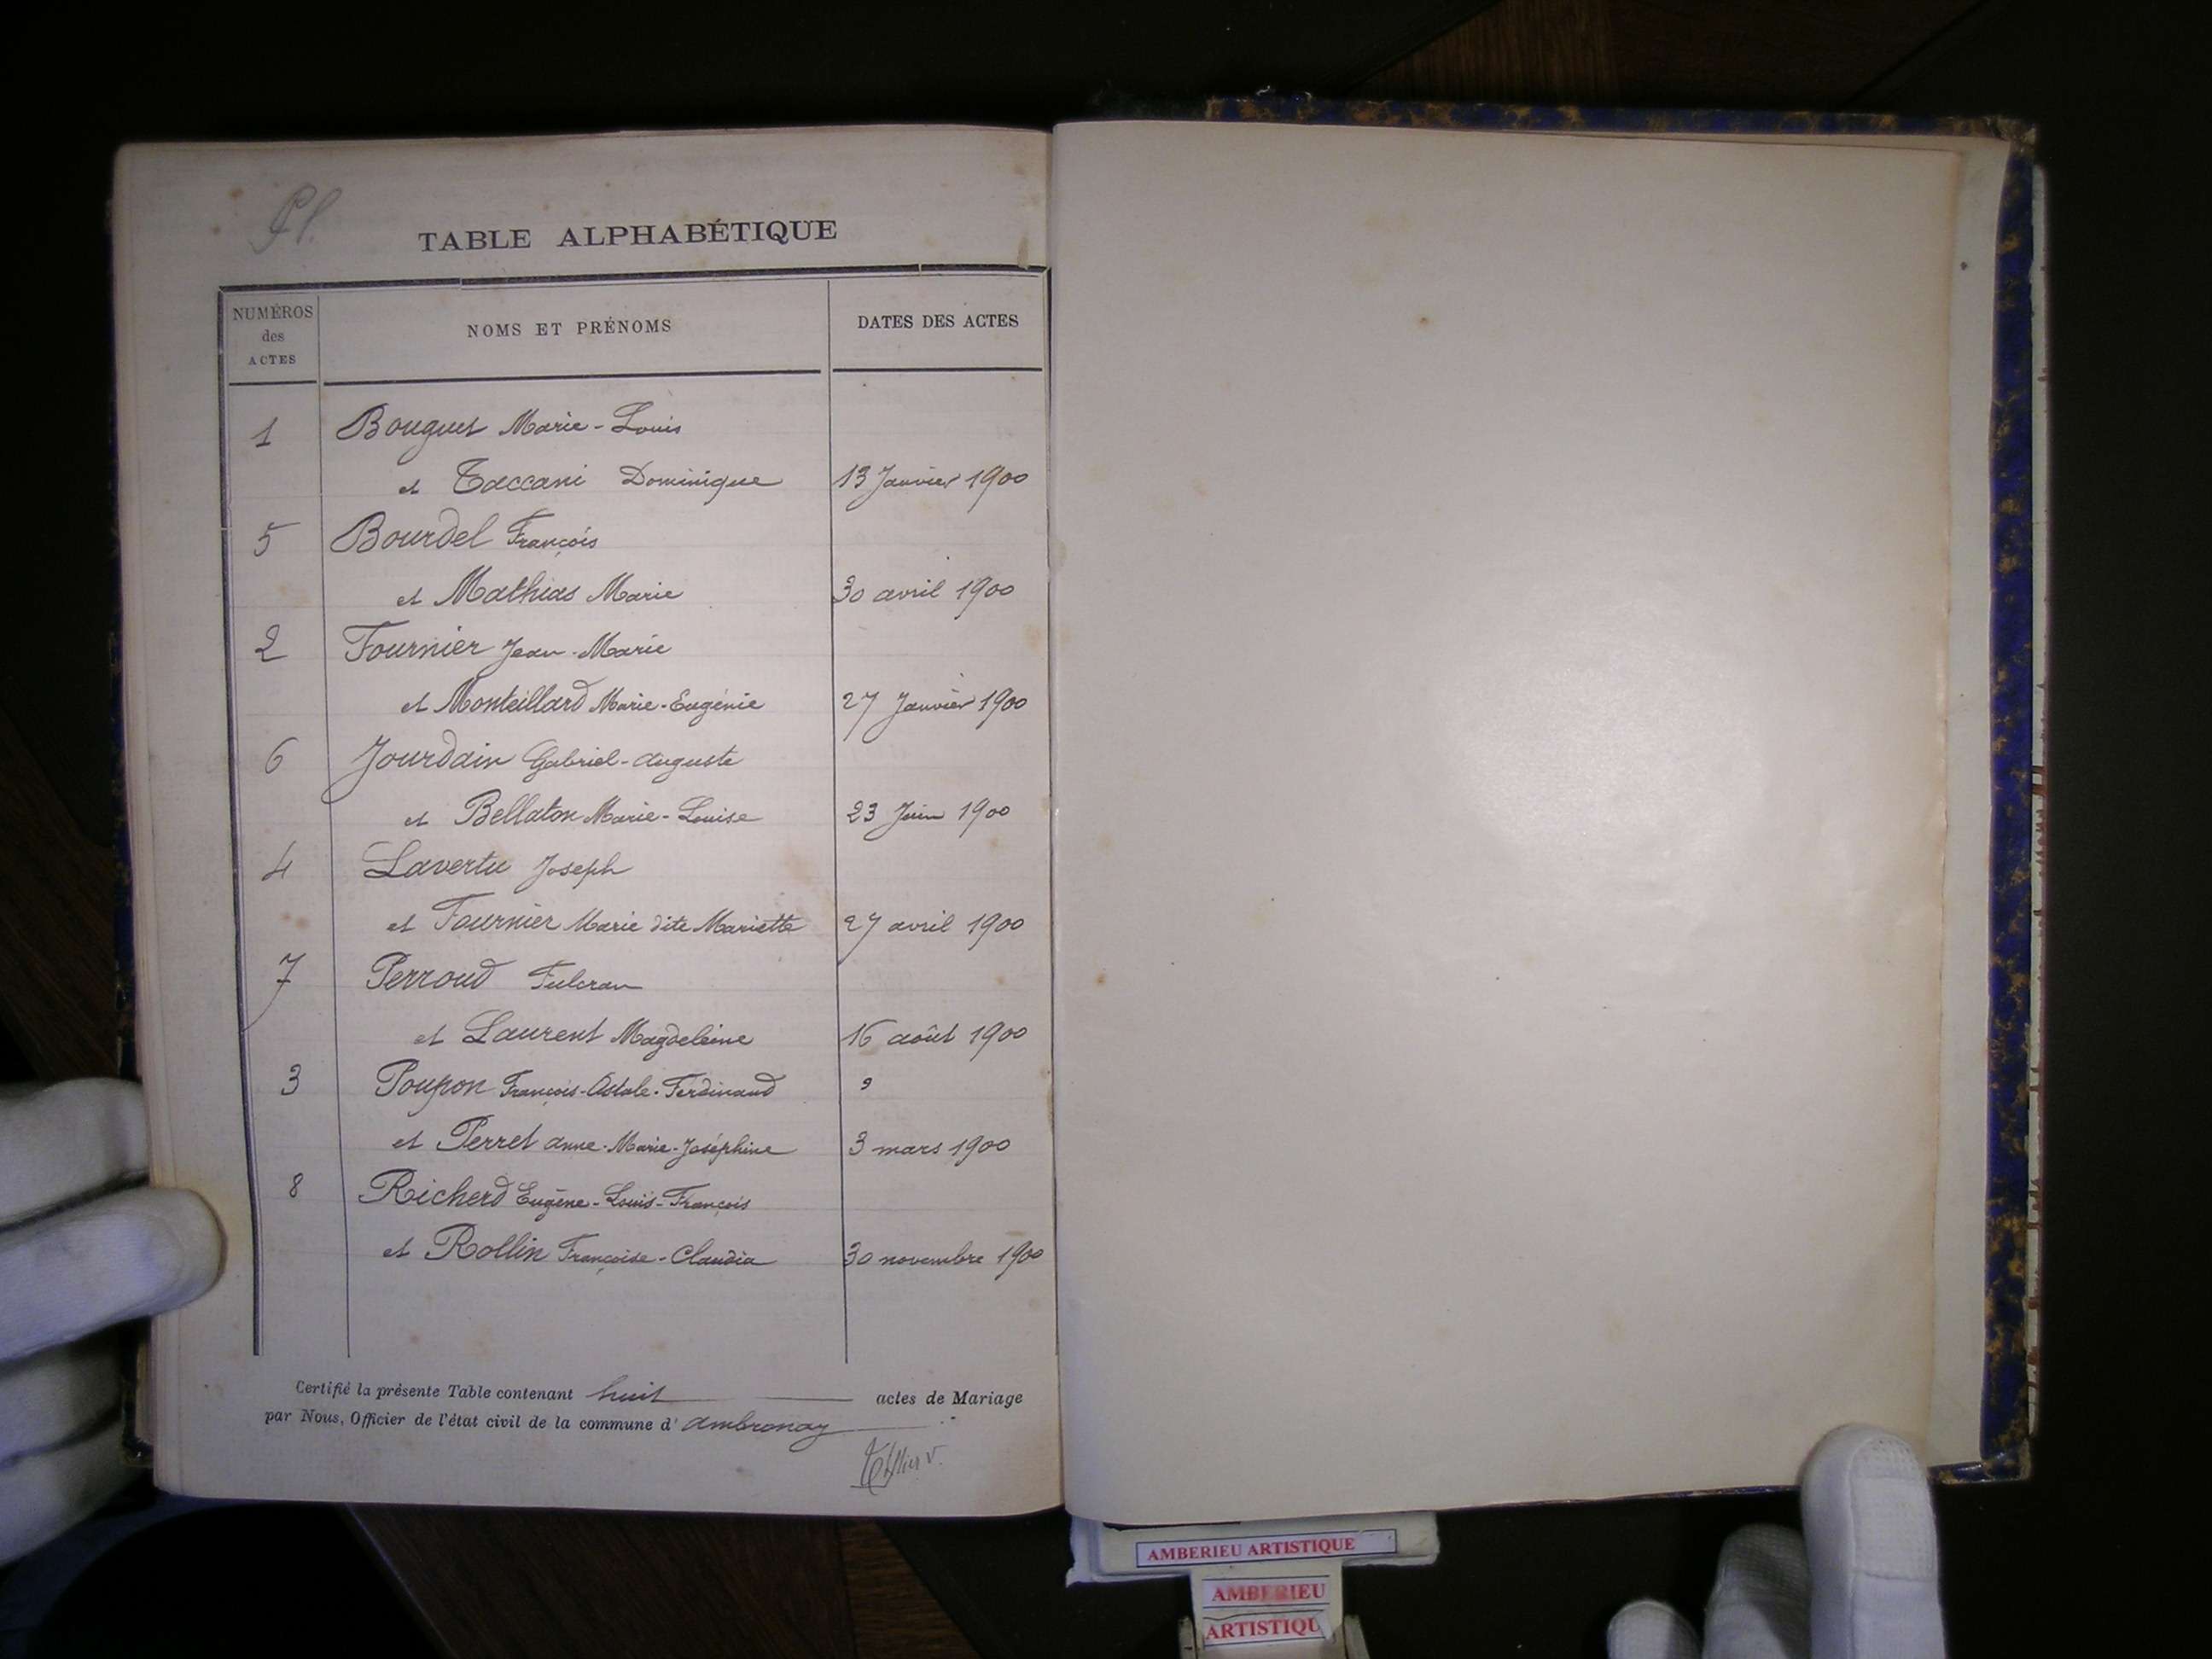 TABLE ALPHABÉTIQUE
NUMÉROS des ACTES
NOMS ET PRÉNOMS
DATES DES ACTES
1 Bouguet Marie-Louis
et Taccani Dominique 13 Janvier 1900
5 Bourdel François
et Mathias Marie 30 avril 1900
2 Fournier Jean-Marie
et Monteillard Marie-Eugénie 27 Janvier 1900
6 Jourdain Gabriel-Auguste
et Bellaton Marie-Louise 23 Juin 1900
4 Lavertu Joseph
et Fournier Marie dite Mariette 27 avril 1900
7 Perroud Fulcran
et Laurent Magdeleine 16 août 1900
3 Poupon François- -Ferdinand
et Perret Anne-Marie-Joséphine 3 mars 1900
8 Richerd Eugène-Louis-François
et Rollin Françoise-Claudia 30 novembre 1900
Certifié la présente Table contenant huit actes de Mariage
par Nous, Officier de l'état civil de la commune d'Ambronay
AMBERIEU ARTISTIQUE
AMBERIEU
ARTISTIQU